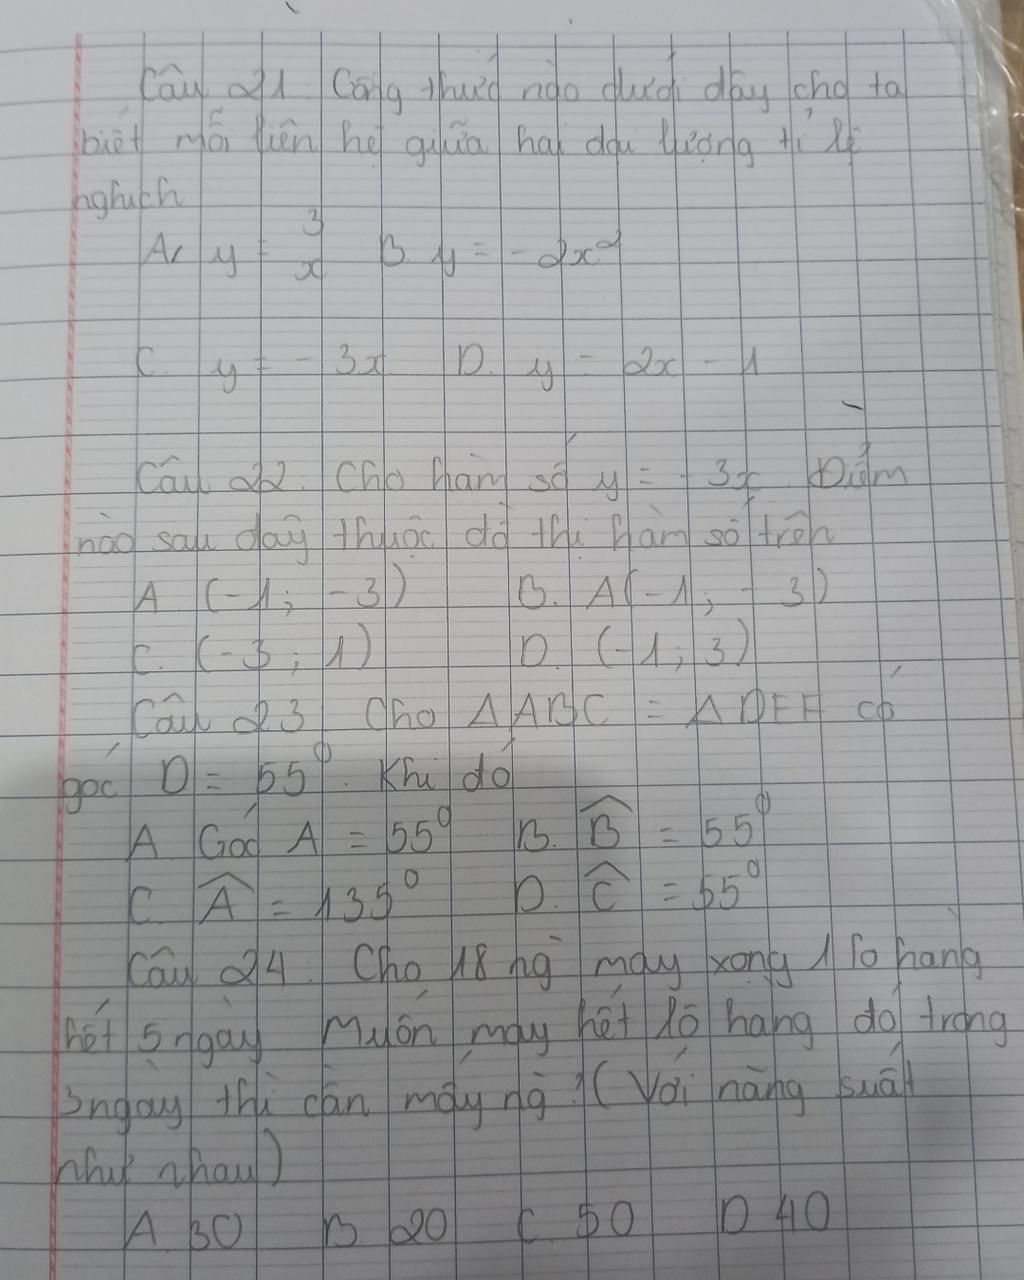 Câu 21. Công thức nào dưới đây cho ta
biết mỗi liên hệ giữa hai đại lượng tỉ lệ
nghịch
A, y = 3/x B. y = -2x²
C. y = -3x D. y = 2x - 1
Câu 22. Cho hàm số y = -3x. Điểm
nào sau đây thuộc đồ thị hàm số trên
A (-1; -3) B. A(-1; -3)
C. (-3; 1) D. (-1; 3)
Câu 23 Cho ΔABC = ΔDEF có
góc D = 55⁰. Khi đó
A Góc A = 55⁰ B. B̂ = 55⁰
C. Â = 135⁰ D. Ĉ = 55⁰
Câu 24. Cho 18 ng̀ may xong 1 lô hàng
hết 5 ngày Muốn may hết lô hàng đó trong
3 ngày thì cần mấy ng̀? (Với năng suất
như nhau)
A 30 B 20 C. 50 D 40